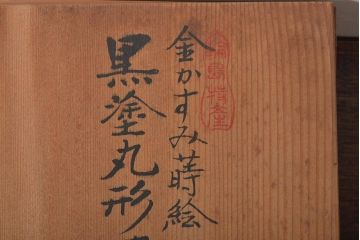 金かすみ蒔絵
黒塗丸形